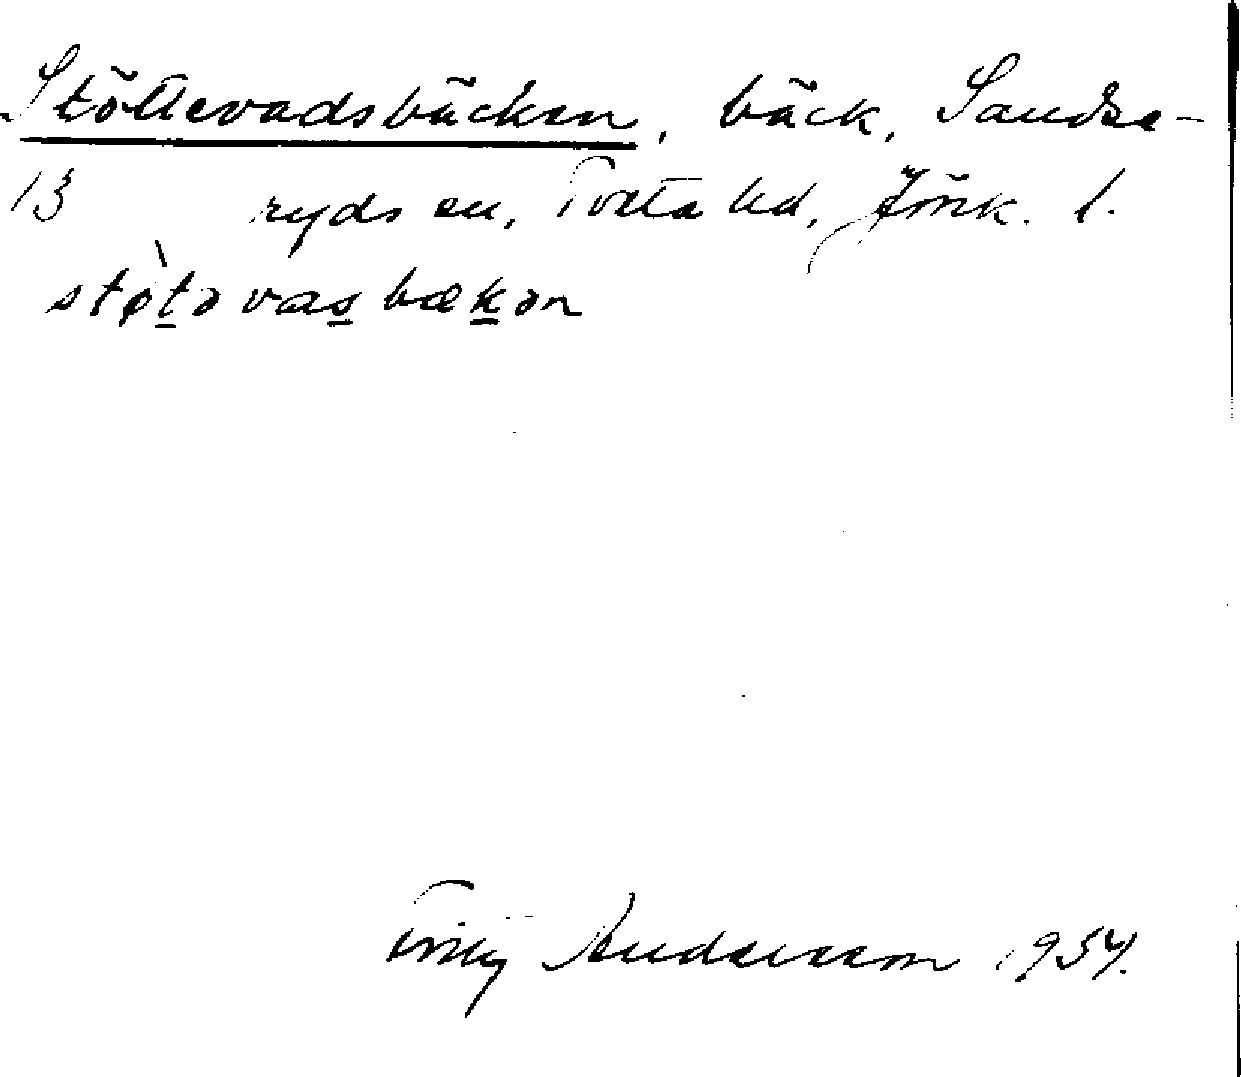 Stöttevadsbäcken, bäck, Sandse-
13 ryds sn, Tveta hd, Jönk. l.
støtəvasbækən
Andersson 1954.